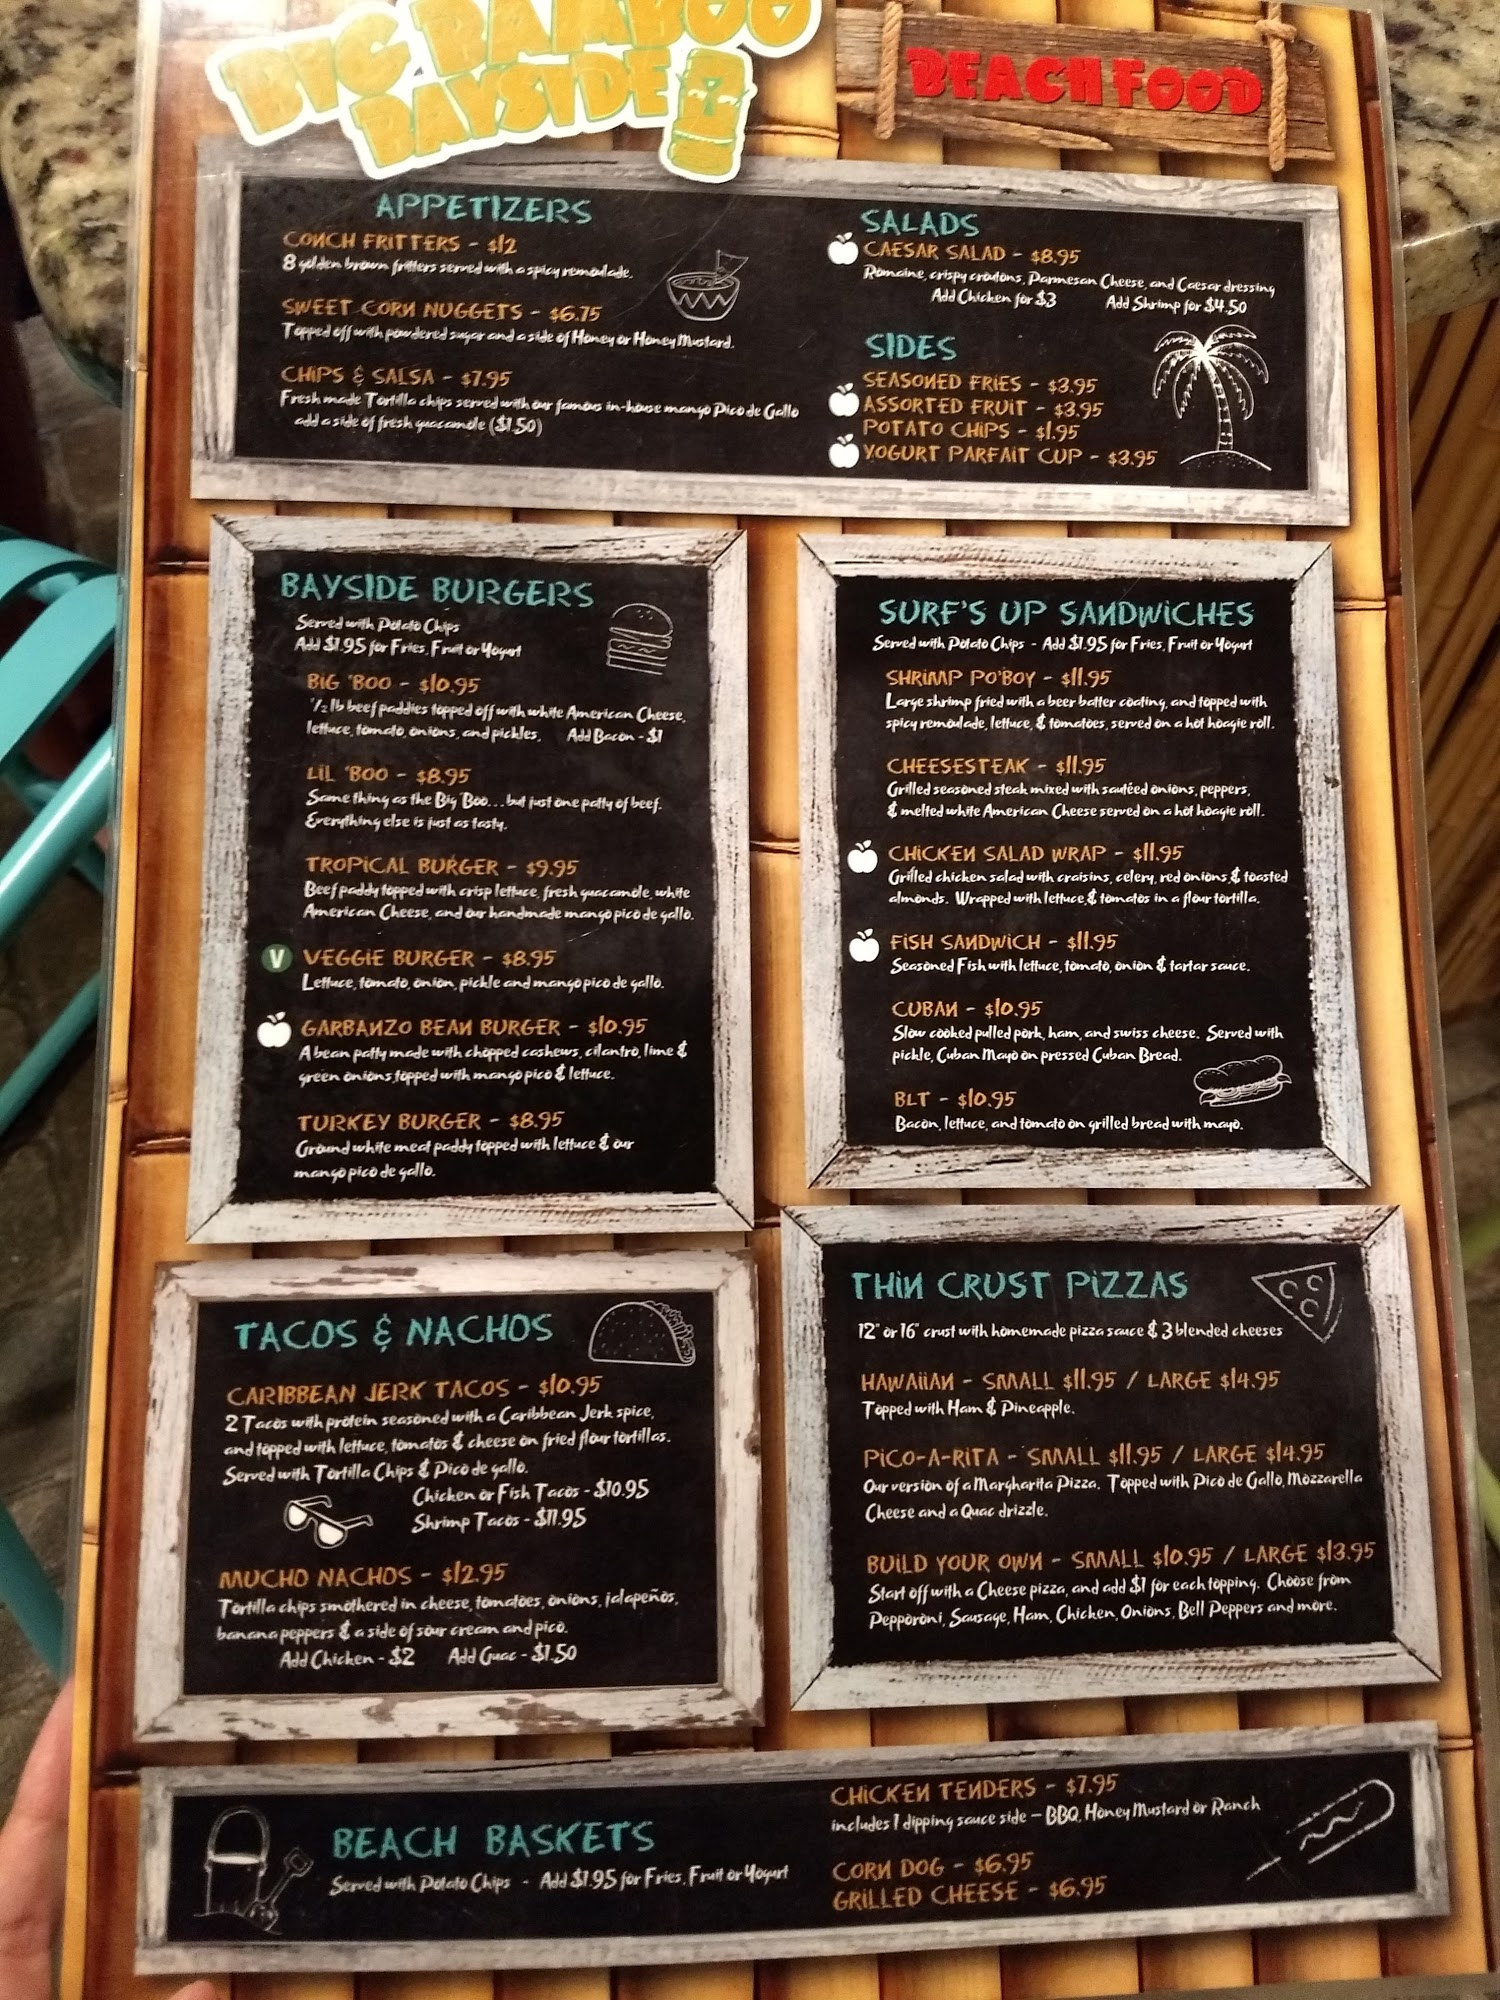 BIG BAMBOO
BAYSIDE
BEACH FOOD
APPETIZERS
CONCH FRITTERS - $12
8 golden brown fritters served with a spicy remoulade.
SWEET CORN NUGGETS - $6.75
Topped off with powdered sugar and a side of Honey or Honey Mustard.
CHIPS & SALSA - $7.95
Fresh made Tortilla chips served with our famous in-house mango Pico de Gallo
add a side of fresh guacamole ($1.50)
SALADS
CAESAR SALAD - $8.95
Romaine, crispy croutons, Parmesan Cheese, and Caesar dressing
Add Chicken for $3 Add Shrimp for $4.50
SIDES
SEASONED FRIES - $3.95
ASSORTED FRUIT - $3.95
POTATO CHIPS - $1.95
YOGURT PARFAIT CUP - $3.95
BAYSIDE BURGERS
Served with Potato Chips
Add $1.95 for Fries, Fruit or Yogurt
BIG 'BOO - $10.95
1/2 lb beef paddies topped off with white American Cheese,
lettuce, tomato, onions, and pickles. Add Bacon - $1
LIL 'BOO - $8.95
Same thing as the Big 'Boo...but just one patty of beef.
Everything else is just as tasty.
TROPICAL BURGER - $9.95
Beef paddy topped with crisp lettuce, fresh guacamole, white
American Cheese, and our handmade mango pico de gallo.
V VEGGIE BURGER - $8.95
Lettuce, tomato, onion, pickle and mango pico de gallo.
GARBANZO BEAN BURGER - $10.95
A bean patty made with chopped cashews, cilantro, lime &
green onions, topped with mango pico & lettuce.
TURKEY BURGER - $8.95
Ground white meat paddy topped with lettuce & our
mango pico de gallo.
SURF'S UP SANDWICHES
Served with Potato Chips - Add $1.95 for Fries, Fruit or Yogurt
SHRIMP PO'BOY - $11.95
Large shrimp fried with a beer batter coating, and topped with
spicy remoulade, lettuce, & tomatoes, served on a hot hoagie roll.
CHEESESTEAK - $11.95
Grilled seasoned steak mixed with sautéed onions, peppers,
& melted white American Cheese served on a hot hoagie roll.
CHICKEN SALAD WRAP - $11.95
Grilled chicken salad with craisins, celery, red onions, & toasted
almonds. Wrapped with lettuce, & tomatos in a flour tortilla.
FISH SANDWICH - $11.95
Seasoned Fish with lettuce, tomato, onion & tartar sauce.
CUBAN - $10.95
Slow cooked pulled pork, ham, and swiss cheese. Served with
pickle, Cuban Mayo on pressed Cuban Bread.
BLT - $10.95
Bacon, lettuce, and tomato on grilled bread with mayo.
TACOS & NACHOS
CARIBBEAN JERK TACOS - $10.95
2 Tacos with protein seasoned with a Caribbean Jerk spice,
and topped with lettuce, tomatos & cheese on fried flour tortillas.
Served with Tortilla Chips & Pico de gallo.
Chicken or Fish Tacos - $10.95
Shrimp Tacos - $11.95
MUCHO NACHOS - $12.95
Tortilla chips smothered in cheese, tomatoes, onions, jalapeños,
banana peppers & a side of sour cream and pico.
Add Chicken - $2 Add Guac - $1.50
THIN CRUST PIZZAS
12" or 16" crust with homemade pizza sauce & 3 blended cheeses
HAWAIIAN - SMALL $11.95 / LARGE $14.95
Topped with Ham & Pineapple.
PICO-A-RITA - SMALL $11.95 / LARGE $14.95
Our version of a Margharita Pizza. Topped with Pico de Gallo, Mozzarella
Cheese and a Guac drizzle.
BUILD YOUR OWN - SMALL $10.95 / LARGE $13.95
Start off with a Cheese pizza, and add $1 for each topping. Choose from
Pepporoni, Sausage, Ham, Chicken, Onions, Bell Peppers and more.
BEACH BASKETS
Served with Potato Chips - Add $1.95 for Fries, Fruit or Yogurt
CHICKEN TENDERS - $7.95
includes 1 dipping sauce side – BBQ, Honey Mustard or Ranch
CORN DOG - $6.95
GRILLED CHEESE - $6.95